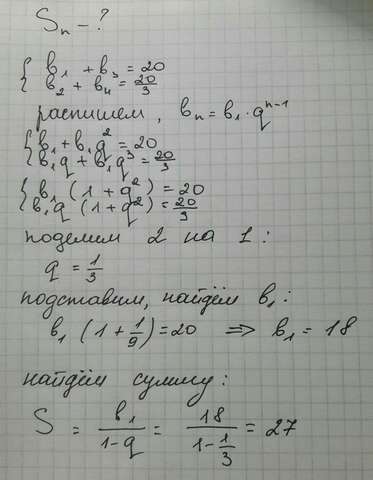 Sn - ?
{ b1 + b3 = 20
b2 + b4 = 20/3
распишем, bn = b1 · q^(n-1)
{ b1 + b1q^2 = 20
b1q + b1q^3 = 20/3
{ b1 (1 + q^2) = 20
b1q (1 + q^2) = 20/3
поделим 2 на 1:
q = 1/3
подставим, найдём b1:
b1 (1 + 1/9) = 20 ⇒ b1 = 18
найдём сумму:
S = b1/(1-q) = 18/(1 - 1/3) = 27